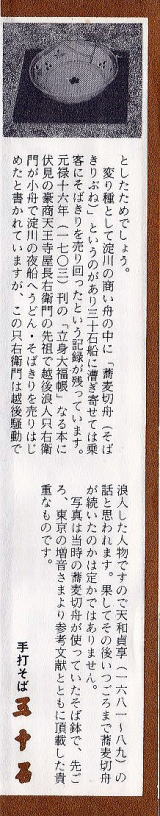 としたためでしょう。
　変り種として淀川の商い舟の中に「蕎麦切舟（そば
きりぶね）」というのがあり三十石船に漕ぎ寄せては乗
客にそばきりを売り回ったという記録が残っています。
元禄十六年（一七〇三）刊の「立身大福帳」なる本に
伏見の豪商天王寺屋長右衛門の先祖で越後浪人只右衛
門が小舟で淀川の夜船へうどん・そばきりを売りはじ
めたと書かれていますが、この只右衛門は越後騒動で
浪人した人物ですので天和貞享（一六八一〜八九）の
話と思われます。果してその後いつごろまで蕎麦切舟
が続いたのかは定かではありません。
　写真は当時の蕎麦切舟が使っていたそば鉢で、先ご
ろ、東京の増音さまより参考文献とともに頂載した貴
重なものです。
手打そば 五十石